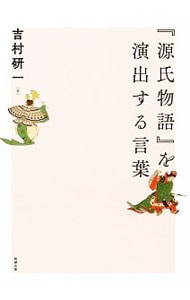 『源氏物語』を
演出する言葉
吉村研一